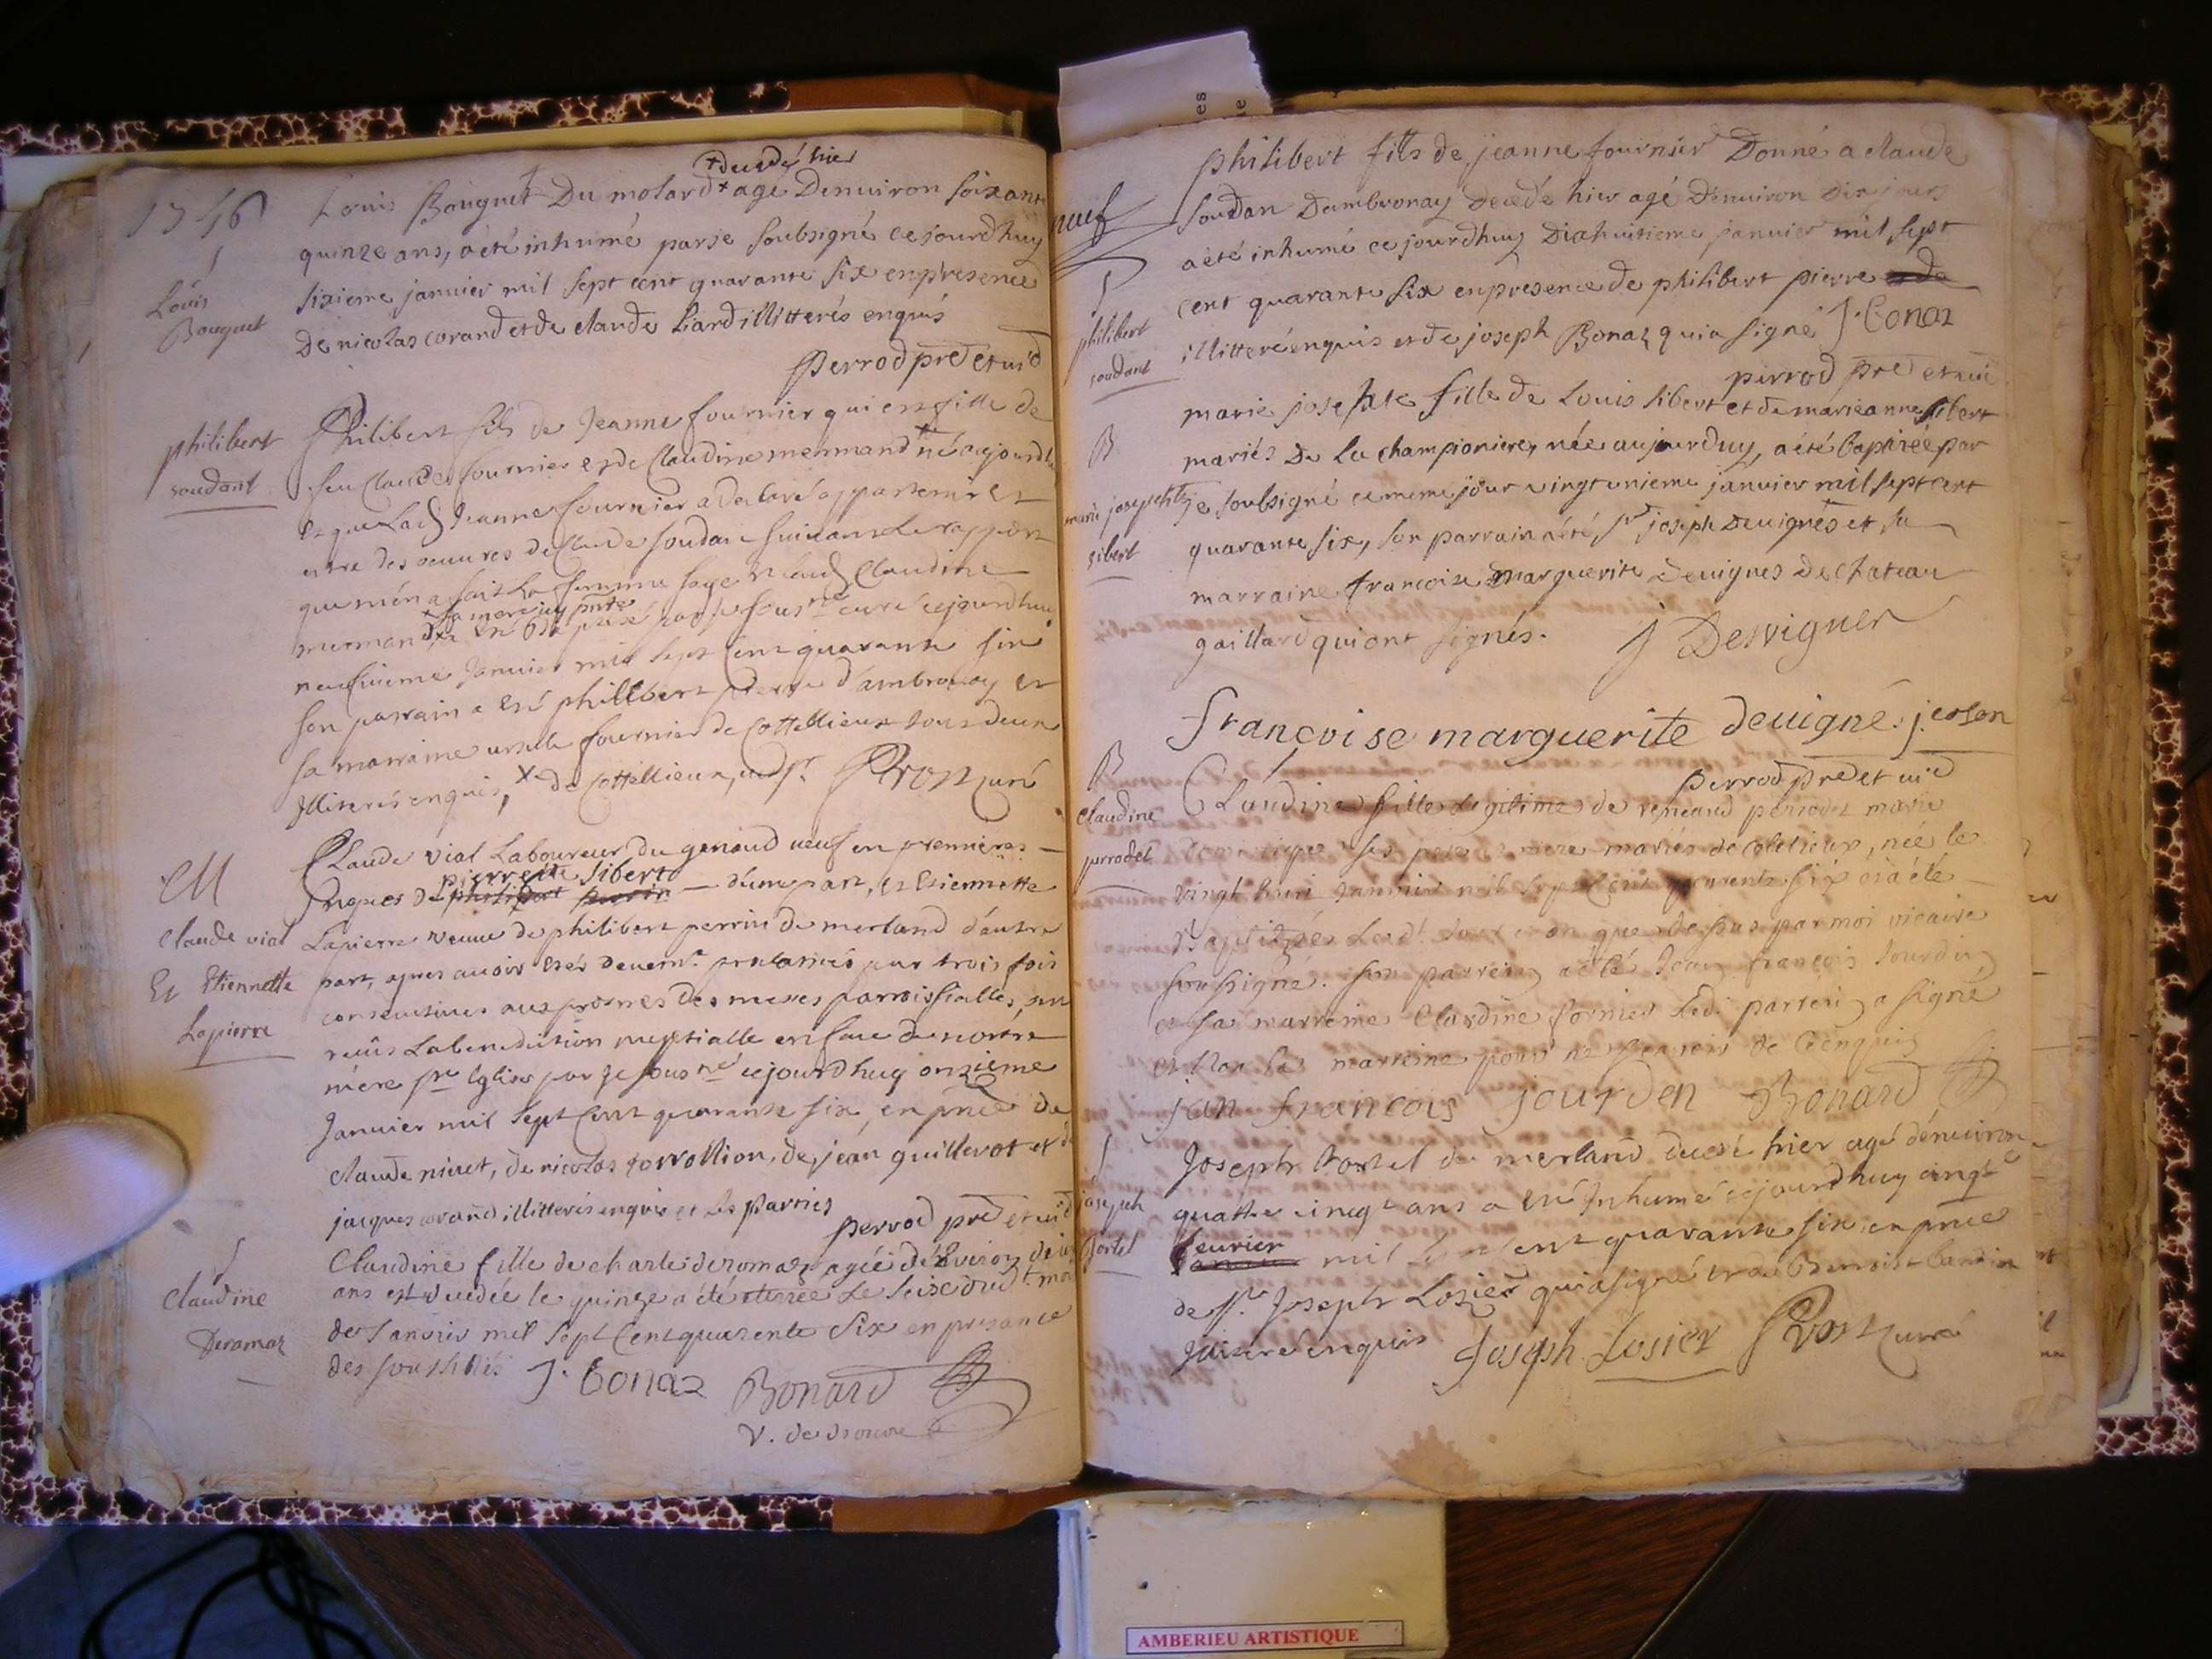 1746
S
Louis
Bouguet
+ decedé hier
Louis Bouguet Du molard + agé Denuiron soixante
quinze ans, a été inhumé par je soubsigné ce jourdhuy
sixieme januier mil sept cent quarante six en presence
De nicolas corand et de claude Liard illitterés enquis
Perrod prē et uic̄
philibert
soudant
Philibert fils de Jeanne fournier qui est fille de
feu Claude fournier et de Claudine mermand + né aujourdh
et que Lad Jeanne fournier a declaré appartenir et
estre des oeuures de Claude soudan suiuant le rapport
que m'en a fait La femme sage et lad Claudine
+ sa mere icy pnte
mermand + a esté baptisé par je sousné curé cejourdhuy
neufuieme Januier mil sept cent quarante six
son parrain a esté philibert pierre d'ambronay et
sa marraine ursule fournier de Cottellieux tous deux
Illiterés enquis, x de Cottellieux, Prost curé
M
Claude vial
Et Etiennette
Lapierre
Claude vial Laboureur du genoud ueuf en premieres
pierrette sibert
Nopces de philibert perrin — d'une part, et Etiennette
Lapierre veuue de philibert perrin de merland d'autre
part, apres auoir estés deuemt proclamés par trois fois
consecutiues aux prosnes des messes parroissialles, ont
receûs La benediction nuptialle en face de nostre
mere ste Eglise par je sousné cejourdhuy onzieme
Januier mil sept cent quarante six, en pnce de
claude niuet, de nicolas torrollion, de jean guillerot et de
jacques corand illitterés enquis et les parties
perrod prē et uic̄
S
Claudine
Deromaz
Claudine fille de charle deromaz agée d'enuiron dix
ans est decedée le quinze a été eterrée Le seize dud t mois
de Januier mil sept Cent quarente six en presance
des soussinés J. Bonaz Bonard
neuf
S
philibert
soudant
philibert fils de jeanne fournier Donné a claude
soudan Dambronay decedé hier agé Denuiron dix jours
a été inhumé ce jourdhuy Dixhuitieme januier mil sept
cent quarante six en presence de philibert pierre
illitteré enquis et de joseph Bonaz qui a signé J. Bonaz
perrod prē et uic̄
B
marie josephte
sibert
marie josephte fille de Louis sibert et de marieanne sibert
mariés De La championiere, née aujourduy, a été baptisée par
je soubsigné ce meme jour vingtunieme januier mil sept cent
quarante six, son parrain a été sr joseph Deuignes et sa
marraine francoise marguerite Deuignes De chateau
gaillard qui ont signés. J Desvignes
françoise marguerite deuigné.
perrod prē et uic̄
B
Claudine
perrodet
Claudine fille Legitime de reneand perrodet marie
ses pere et mere mariés de Coletieux, née le
vingt huit Januier mil sept Cent quarente six et a été
Baptizée Led t jour et an que dessus par moi vicaire
soussigné. son parrein a étés Jean françois Jourdin
et sa marreine Claudine fornier Led. parrein a signé
et Non la marreine pour ne sçauoir de Ce enquis
jan francois jourden Bonard
S
joseph
Portel
Joseph Portel de merland decedé hier agé d'enuiron
quattre vingt ans a esté Inhumé cejourdhuy cinqe
feurier
mil sept cent quarante six en pnce
de Sr Joseph Losier qui a signé et de Benoist
Illiteré enquis Joseph Losier Prost curé
AMBERIEU ARTISTIQUE